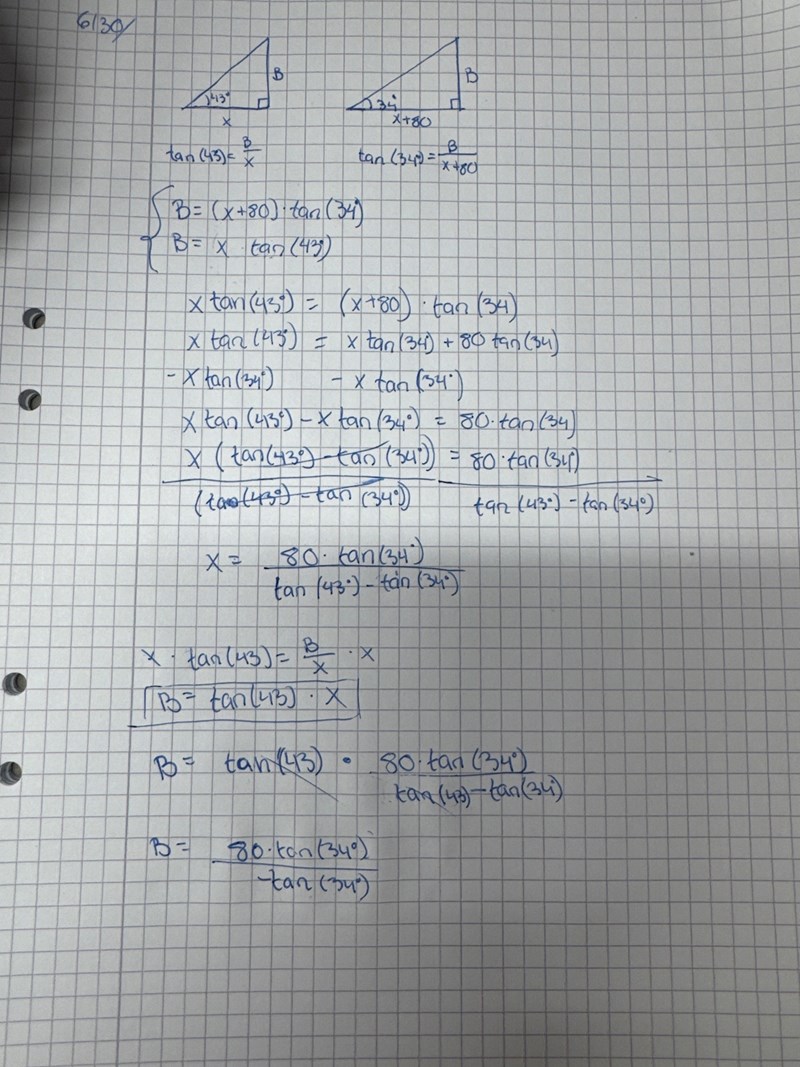 6130/
43° B x
34° B x+80
tan(43)= B/x tan(34°)= B/(x+80)
B= (x+80)·tan(34)
B= x · tan(43°)
x tan(43°) = (x+80) · tan(34)
x tan(43°) = x tan(34) + 80 tan(34)
-x tan(34°) - x tan(34°)
x tan(43°) - x tan(34°) = 80·tan(34)
x (tan(43°) - tan(34°)) = 80·tan(34°)
(tan(43°) - tan(34°)) tan(43°) - tan(34°)
x = 80·tan(34°)/(tan(43°) - tan(34°))
x · tan(43) = B/x · x
B= tan(43) · x
B= tan(43) · 80·tan(34°)/(tan(43)-tan(34))
B= 80·tan(34°)/(-tan(34°))